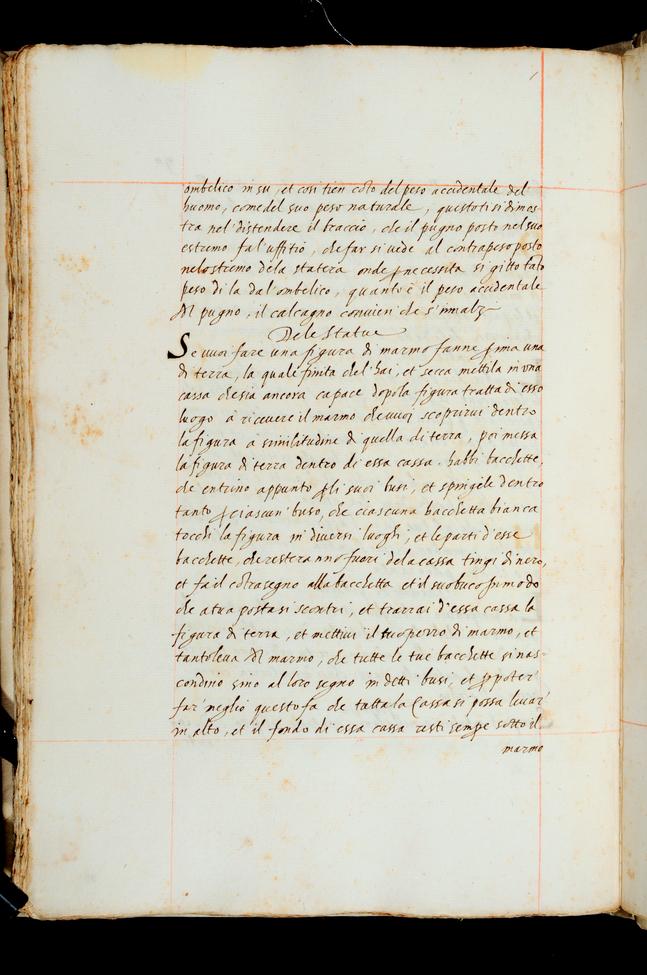 ombelico in su, et cosi tien coto del peso accidentale del
huomo, come del suo peso naturale, questo ti si dimos
tra nel distendere il braccio, che il pugno posto nel suo
estremo fa l'uffitio, che far si vede al contrapeso posto
nelo stremo dela statera onde p necessita si gitto tato
peso di la dal'ombelico, quanto è il peso accidentale
del pugno, il calcagno convien che s'inalzi
Dele Statue
Se vuoi fare una figura di marmo fanne prima una
di terra, la quale finita che l'hai, et secca mettila in una
cassa che sia ancora capace dopo la figura tratta di esso
luogo à ricevere il marmo che vuoi scoprirvi dentro
la figura à similitudine di quella di terra, poi messa
la figura di terra dentro di essa cassa. habbi bacchette,
che entrino appunto p li suoi busi, et spingele dentro
tanto p ciascun buso, che ciascuna bacchetta bianca
tocchi la figura in diversi luoghi, et le parti d'esse
bacchette, che resteranno fuori dela cassa tingi di nero,
et fa il cotrasegno alla bacchetta et il suo buco in modo
che a tua posta si scontri, et trarrai d'essa cassa la
figura di terra, et mettivi il tuo pezzo di marmo, et
tanto leva del marmo, che tutte le tue bacchette si nas-
condino sino al loro segno in detti busi, et p poter
far meglio questo fa che tutta la Cassa si possa levar
in alto, et il fondo di essa cassa resti sempe sotto il
marmo